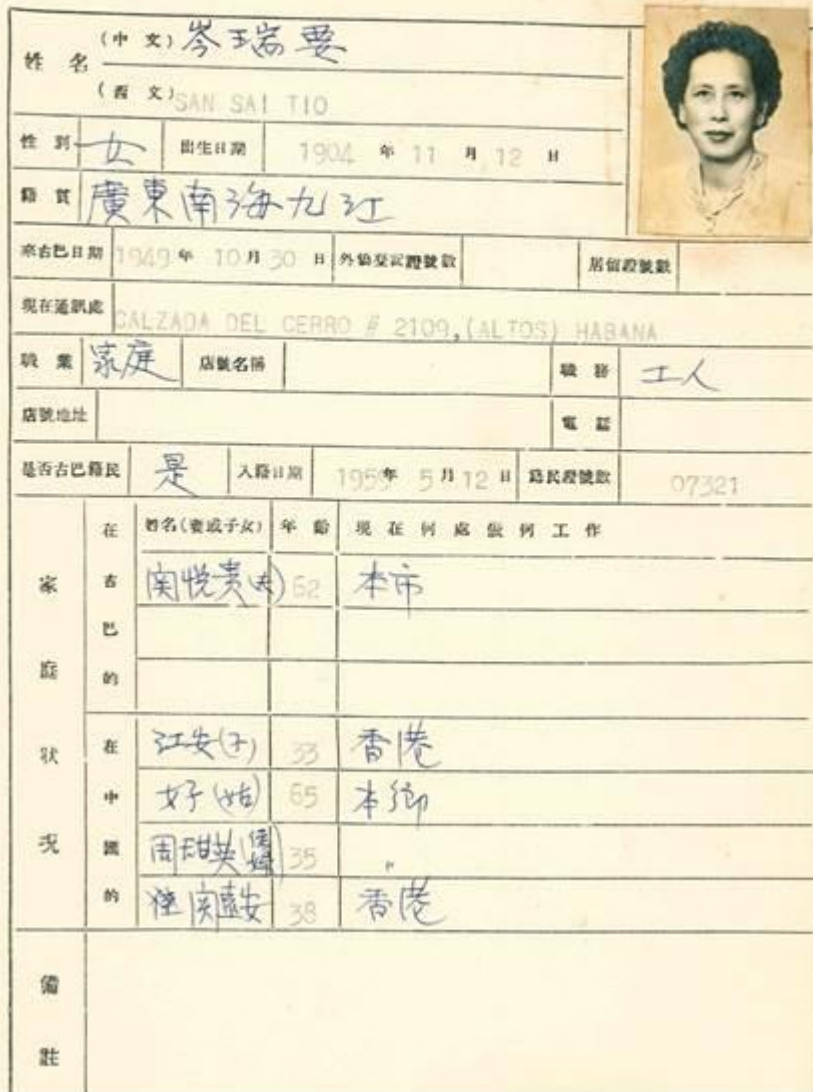 姓名 (中文) 岑瑞要
(西文) SAN SAI TIO
性別 女 出生日期 1904 年 11 月 12 日
籍貫 廣東南海九江
來古巴日期 1949 年 10 月 30 日 外僑登記證號數 居留證號數
現在通訊處 CALZADA DEL CERRO # 2109,(ALTOS) HABANA
職業 家庭 店號名稱 職務 工人
店號地址 電話
是否古巴籍民 是 入籍日期 1959 年 5 月 12 日 籍民證號數 07321
家庭狀況
在古巴的 姓名(妻或子女) 年齡 現在何處做何工作
関悦貴(夫) 62 本市
在中國的 江安(子) 33 香港
女子(姑) 65 本鄉
周甜英 35 〃
関 安 38 香港
備註